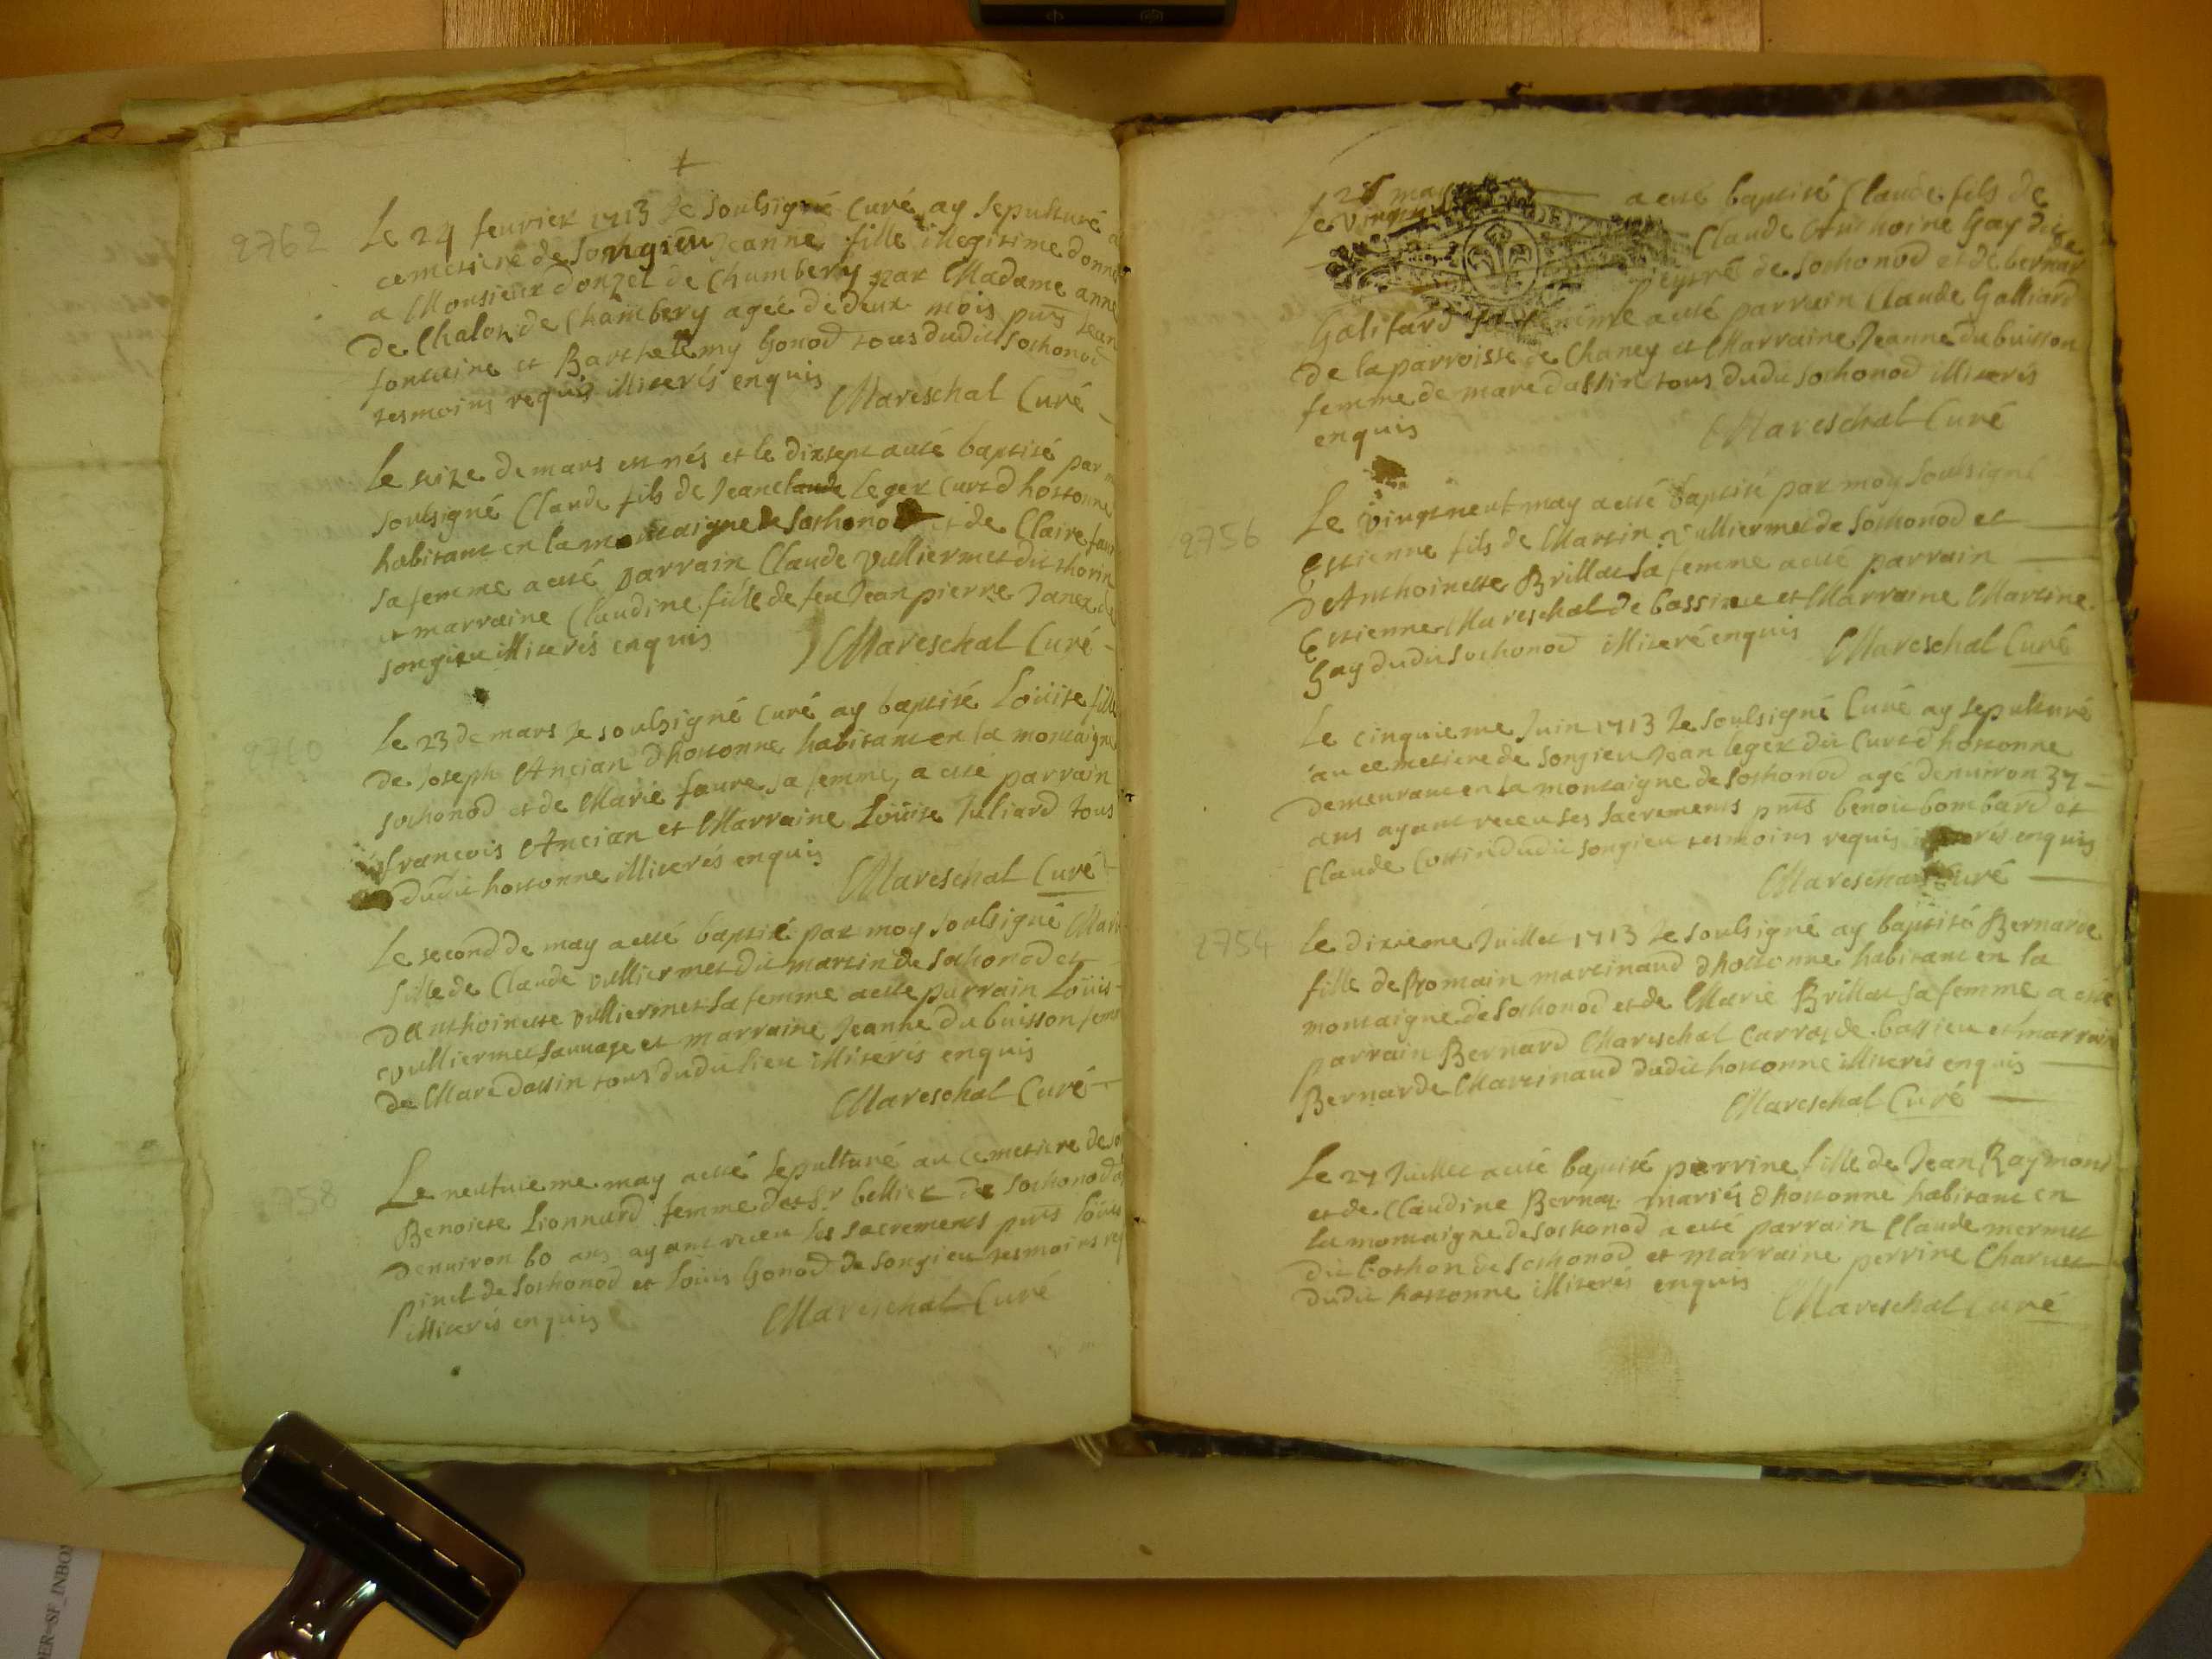 +
2762
Le 24 feurier 1713 Je soulsigné Curé ay sepulturé a
cemetiere de Songieu Jeanne fille illegitime donnee
a Monsieur donzel de Chambery par Madame anne
de Chalon de Chambery agée de deux mois pnts Jean
fontaine et Barthelemy Gonod tous dudit Sothonod
tesmoins requis illiterés enquis
Mareschal Curé
Le seize de mars est nés et le dixsept a esté baptisé par m
soulsigné Claude fils de Jeanclaude leger Curt d hostonne
habitant en la montaigne de Sothonod et de Claire faur
sa femme a esté parrain Claude Vulliermet dit thorin
et marraine Claudine fille de feu Jean pierre Janez de
songieu illiterés enquis
Mareschal Curé
2760
Le 23 de mars Je soulsigné Curé ay baptisé Loüise fille
de Joseph Ancian d hostonne habitant en la montaigne
sothonod et de Marie faure sa femme, a esté parrain
francois Ancian et Marraine Loüise Juliard tous
dudit hostonne illiterés enquis
Mareschal Curé
Le second de may a esté baptisé par moy soulsigné Mari
fille de Claude vulliermet dit martin de Sothonod et
d Anthoinette vulliermet sa femme a esté parrain Loüis
vulliermet sauuage et marraine Jeanne du buisson fem
de Marc dassin tous dudit lieu illiterés enquis
Mareschal Curé
2758
Le neufuieme may a esté sepulturé au cemetiere de so
Benoiste Lionnard femme de Sr bellier de Sothonod
denuiron 60 ans ayant receu ses sacrements pnts loüis
pinel de Sothonod et loüis Gonod de Songieu tesmoins re
illiterés enquis
Mareschal Curé
28 may
Le vingt a esté baptisé Claude fils de
Claude Anthoine Gay dit
peyré de Sothonod et de bernar
Galifard sa femme a esté parrain Claude Galliard
de la parroisse de Chaney et Marraine Jeanne du buisson
femme de marc dassin tous dudit Sothonod illiterés
enquis
Mareschal Curé
2756
Le vingtneuf may a esté baptisé par moy soulsigné
Estienne fils de Martin Vulliermet de Sothonod et
d Anthoinette Brillat sa femme a esté parrain
Estienne Mareschal de bassieu et Marraine Martine
Gay dudit Sothonod illiteré enquis
Mareschal Curé
Le cinquieme Juin 1713 Je soulsigné Curé ay sepulturé
au cemetiere de Songieu Jean leger dit Curt d hostonne
demeurant en la montaigne de Sothonod agé denuiron 37
ans ayant receu ses sacrements pnts benoit bombard et
Claude Cottin dudit songieu tesmoins requis enquis
Mareschal Curé
2754
Le dixieme Juillet 1713 Je soulsigné ay baptisé Bernarde
fille de Romain martinand d hostonne habitant en la
montaigne de Sothonod et de Marie Brillat sa femme a esté
parrain Bernard Mareschal Carraz de bassieu et marraine
Bernarde Martinaud dudit hostonne illiterés enquis
Mareschal Curé
Le 27 Juillet a esté baptisé perrine fille de Jean Raymond
et de Claudine Bernar mariés d hostonne habitant en
la montaigne de Sothonod a esté parrain Claude mermet
dit bothon de Sothonod et marraine perrine Charuet
dudit hostonne illiterés enquis
Mareschal Curé